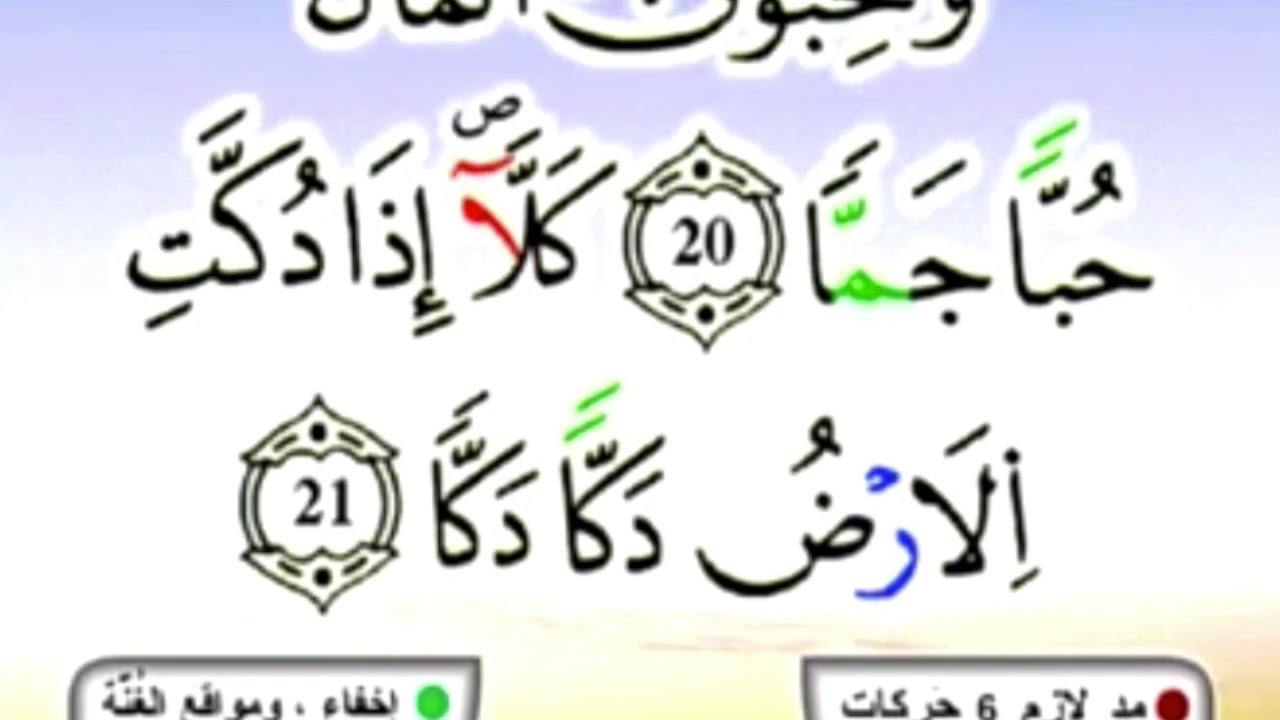 وَتُحِبُّونَ الْمَالَ
حُبّاً جَمّاً 20 كَلَّآ ص إِذَا دُكَّتِ
اِلَارْضُ دَكّاً دَكّاً 21
مد لازم 6 حَركات إخفاء ، ومواقع الغُنَّة